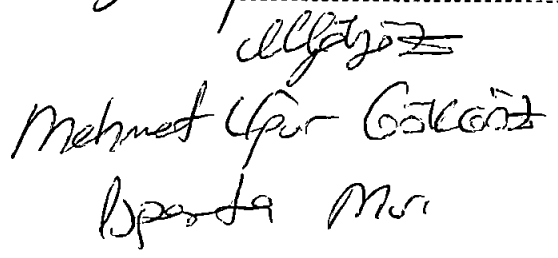 Mehmet Uğur Gökgöz
Isparta Mür.